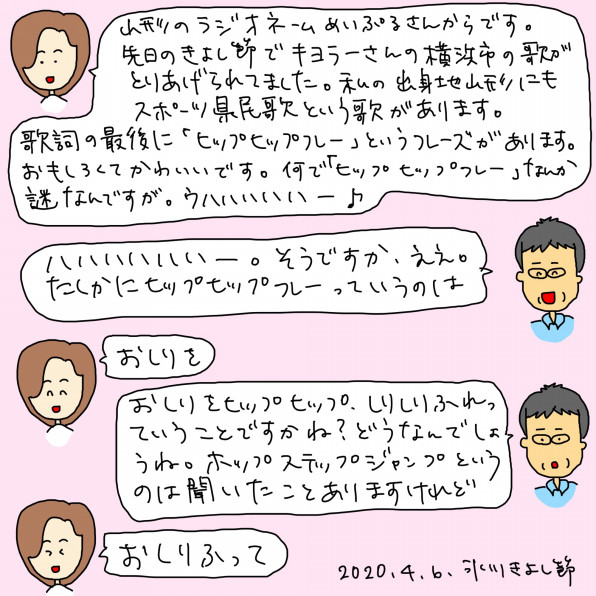 山形のラジオネームめいぷるさんからです。
先日のきよし節でキヨラーさんの横浜市の歌が
とりあげられてました。私の出身地山形にも
スポーツ県民歌という歌があります。
歌詞の最後に「ヒップヒップフレー」というフレーズがあります。
おもしろくてかわいいです。何で「ヒップヒップフレー」なんか
謎なんですが。ウハハいいいいー♪
ハハいいいいいー。そうですか、ええ。
たしかにヒップヒップフレーっていうのは
おしりを
おしりをヒップヒップ、しりしりふれっ
ていうことですかね?どうなんでしょ
うね。ホップステップジャンプという
のは聞いたことありますけれど
おしりふって
2020.4.6. 氷川きよし節